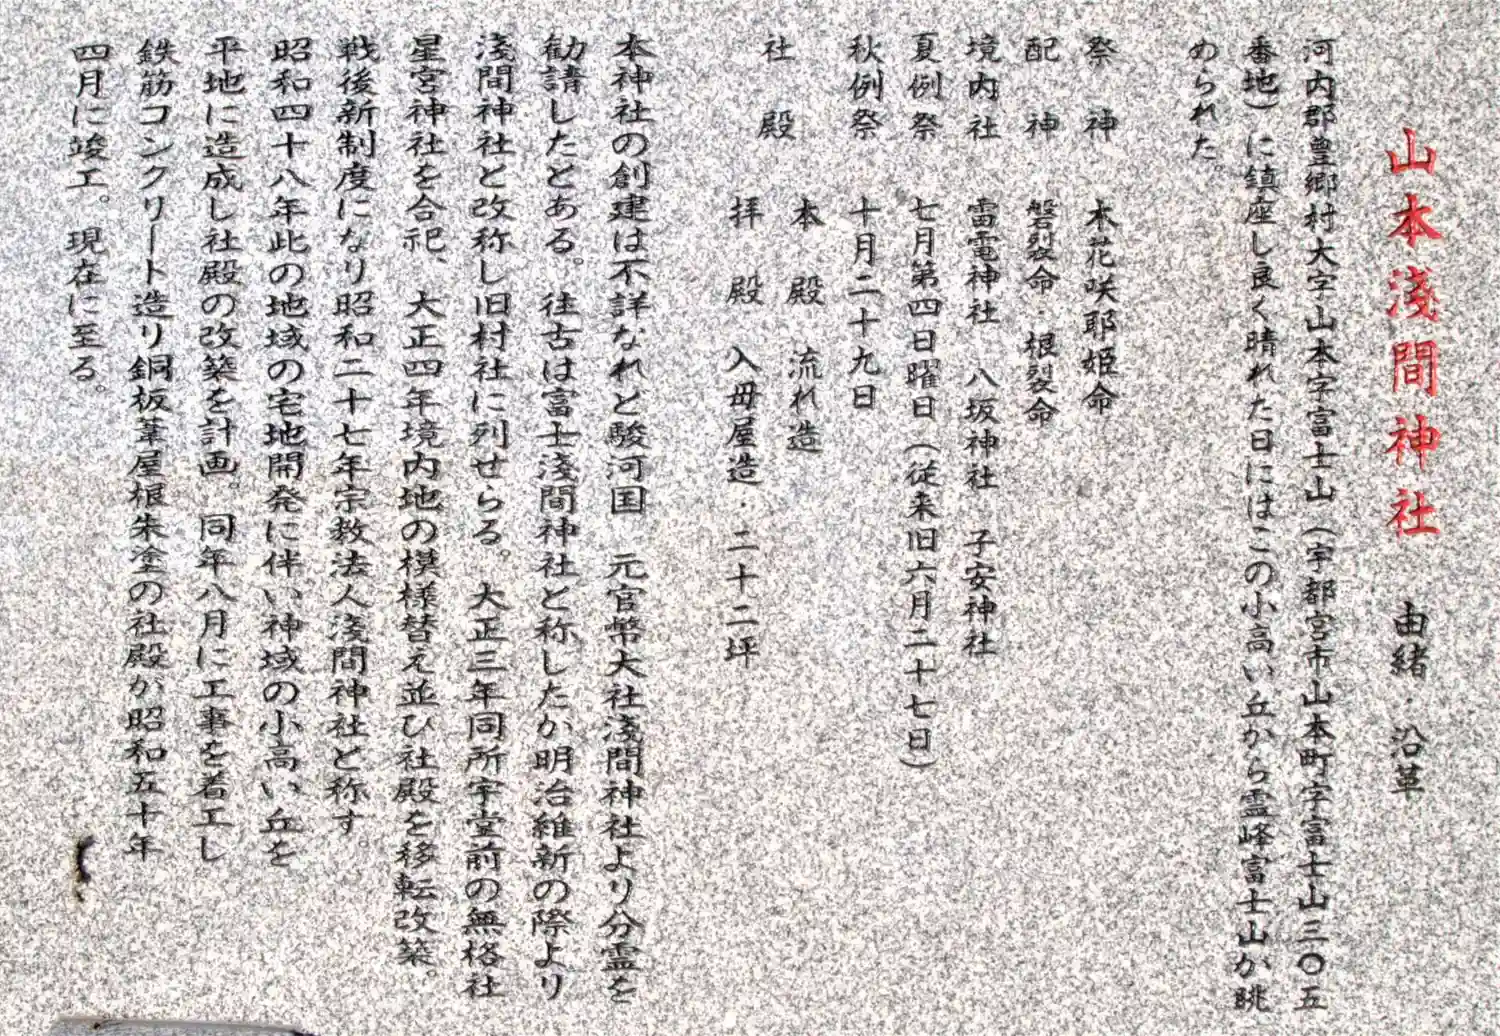 山本淺間神社　由緒・沿革
河内郡豊郷村大字山本字富士山（宇都宮市山本町字富士山三〇五
番地）に鎮座し良く晴れた日にはこの小高い丘から霊峰富士山が眺
められた。
祭　神　木花咲耶姫命
配　神　磐裂命・根裂命
境内社　雷電神社　八坂神社　子安神社
夏例祭　七月第四日曜日（従来旧六月二十七日）
秋例祭　十月二十九日
社　殿　本　殿　流れ造
拝　殿　入母屋造・二十二坪
本神社の創建は不詳なれど駿河国　元官幣大社淺間神社より分霊を
勧請したとある。往古は富士淺間神社と称したが明治維新の際より
淺間神社と改称し旧村社に列せらる。大正三年同所宇堂前の無格社
星宮神社を合祀、大正四年境内地の模様替え並び社殿を移転改築。
戦後新制度になり昭和二十七年宗教法人淺間神社と称す。
昭和四十八年此の地域の宅地開発に伴い神域の小高い丘を
平地に造成し社殿の改築を計画。同年八月に工事を着工し
鉄筋コンクリート造り銅板葺屋根朱塗の社殿が昭和五十年
四月に竣工。現在に至る。